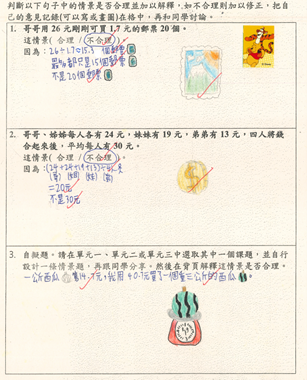 判斷下句子中的情景是否合理並加以解釋，如不合理則加以修正，把自
己的意見記錄(可以寫或畫圖)在格中，再和同學討論。
1. 哥哥用 26 元剛剛可買 1.7 元的郵票 20 個。
這情景( 合理 / 不合理 )。
因為：26÷1.7≈15.3 個郵票
最多都只是15個郵票
不是20個郵票
2. 哥哥、姊姊每人各有 24 元，妹妹有 19 元，弟弟有 13 元，四人將錢
合起來後，平均每人有 30 元。
這情景( 合理 / 不合理 )。
因為：(24+24+19+13)÷4
(哥) (姊) (妹) (弟)
=20元
不是30元
3. 自擬題。請在單元一、單元二或單元三中選取其中一個課題，並自行
設計一條情景題，再跟同學分享。然後在背頁解釋這情景是否合理。
一公斤西瓜
元，我用 40.7元買了一個重三公斤的西瓜